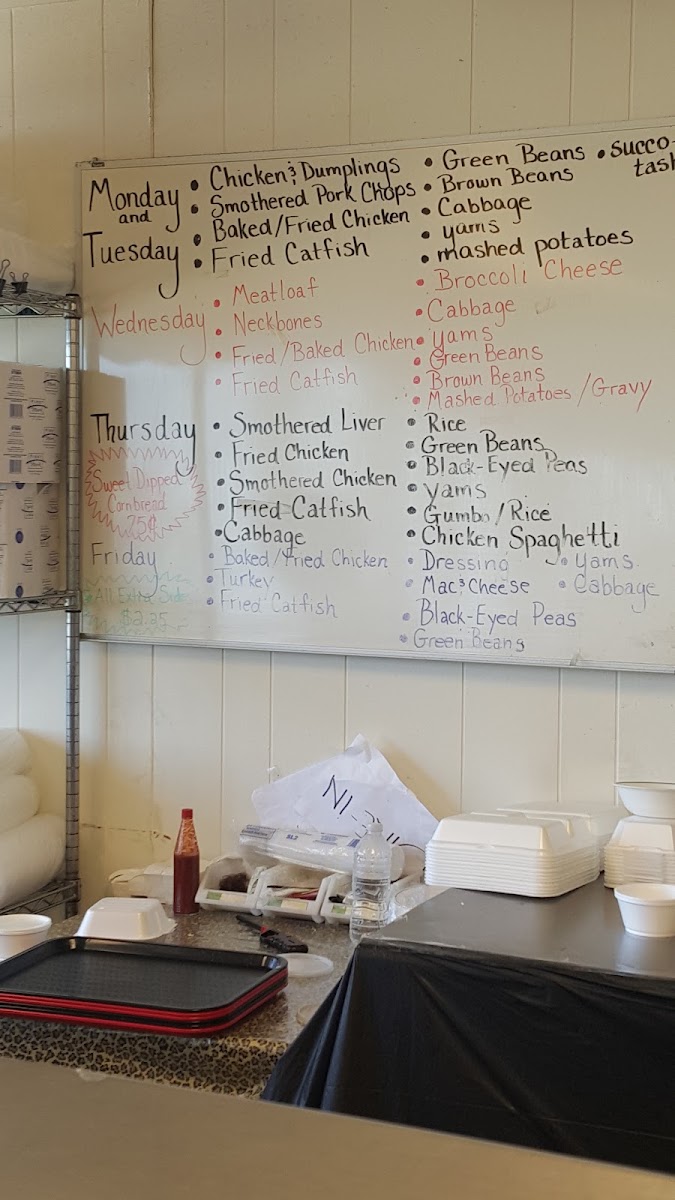 Monday
and
Tuesday
• Chicken & Dumplings
• Smothered Pork Chops
• Baked/Fried Chicken
• Fried Catfish
• Green Beans
• Brown Beans
• Cabbage
• yams
• mashed potatoes
• succo-
tash
Wednesday
• Meatloaf
• Neckbones
• Fried/Baked Chicken
• Fried Catfish
• Broccoli Cheese
• Cabbage
• yams
• Green Beans
• Brown Beans
• Mashed Potatoes/Gravy
Thursday
Sweet Dipped
Cornbread
75¢
• Smothered Liver
• Fried Chicken
• Smothered Chicken
• Fried Catfish
• Cabbage
• Rice
• Green Beans
• Black-Eyed Peas
• yams
• Gumbo/Rice
• Chicken Spaghetti
Friday
All Extra Side
$2.25
• Baked/Fried Chicken
• Turkey
• Fried Catfish
• Dressing
• Mac & Cheese
• Black-Eyed Peas
• Green Beans
• yams
• Cabbage